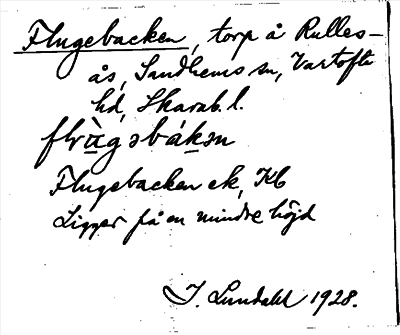 Flugebacken, torp å Rulles-
ås, Sandhems sn, Vartofta
hd, Skarab. l.
Flugebacken ek, Kb
Ligger på en mindre höjd
J. Lundahl 1928.